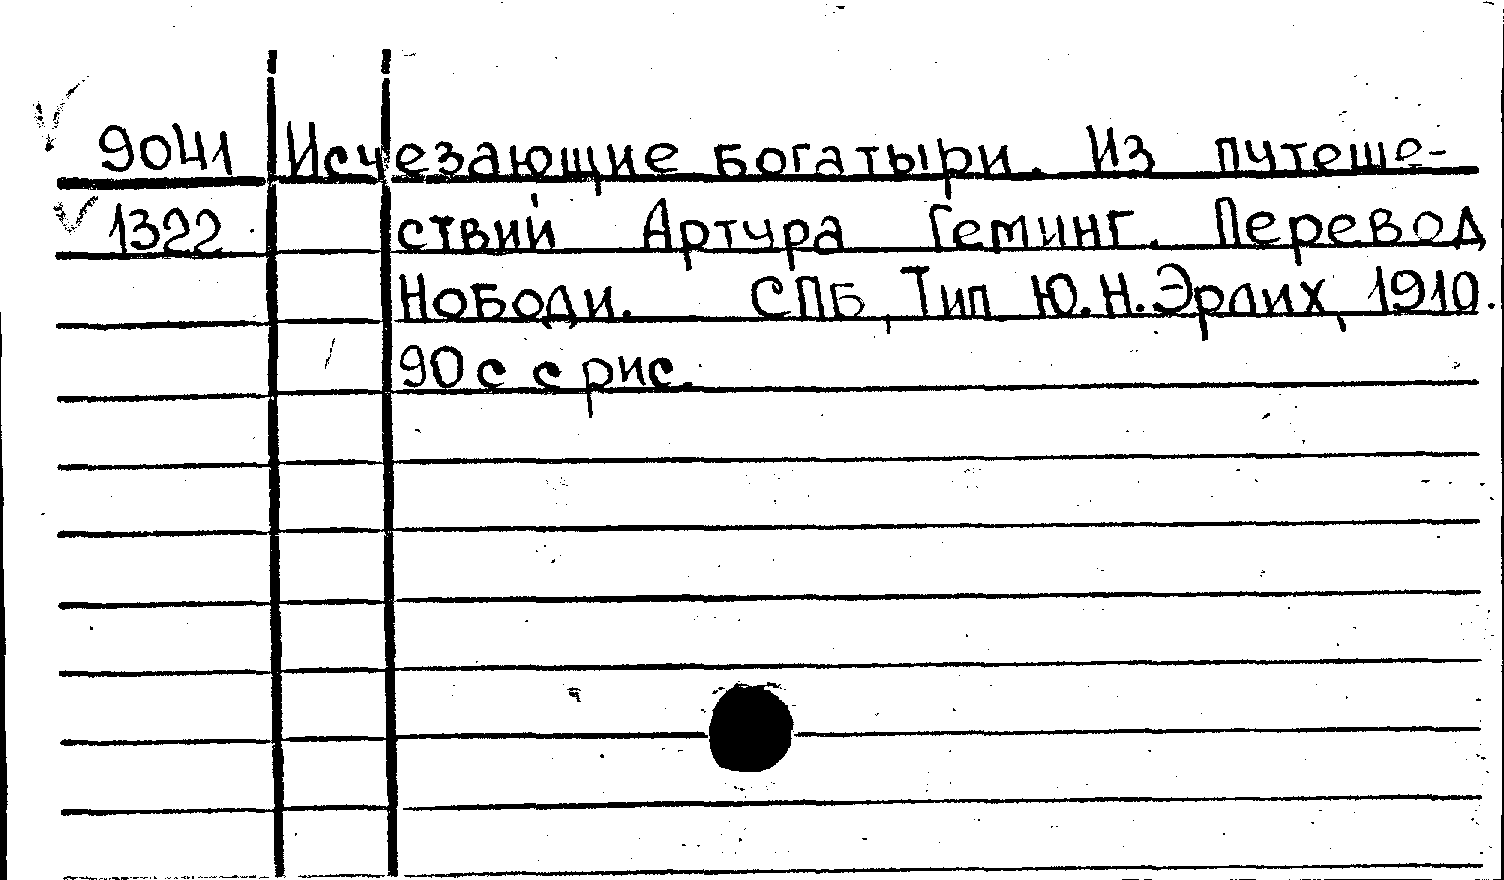 9041 Исчезающие богатыри. Из путеше-
1322 ствий Артура Геминг. Перевод
Нободи. СПБ, Тип Ю.Н.Эрлих, 1910.
90 с с рис.